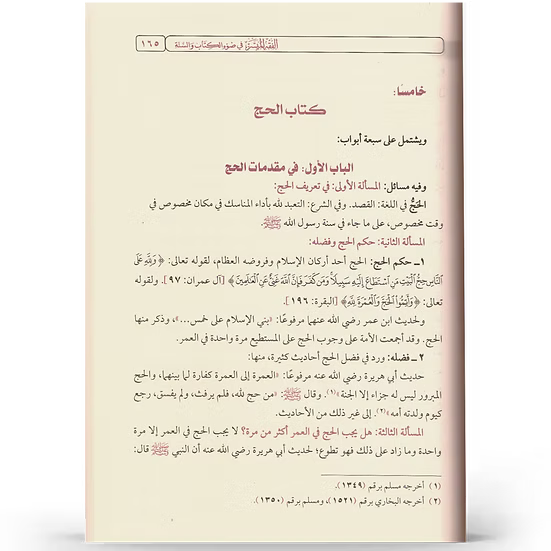 الفقه الميسر في ضوء الكتاب والسنة ١٦٥
خامساً:
كتاب الحج
ويشتمل على سبعة أبواب:
الباب الأول: في مقدمات الحج
وفيه مسائل: المسألة الأولى: في تعريف الحج:
الحَجُّ في اللغة: القصد. وفي الشرع: التعبد لله بأداء المناسك في مكان مخصوص في
وقت مخصوص، على ما جاء في سنة رسول الله ﷺ.
المسألة الثانية: حكم الحج وفضله:
١ـ حكم الحج: الحج أحد أركان الإسلام وفروضه العظام، لقوله تعالى: ﴿وَلِلَّهِ عَلَى
النَّاسِ حِجُّ الْبَيْتِ مَنِ اسْتَطَاعَ إِلَيْهِ سَبِيلًا وَمَن كَفَرَ فَإِنَّ اللَّهَ غَنِيٌّ عَنِ الْعَالَمِينَ﴾ [آل عمران: ٩٧]. ولقوله
تعالى: ﴿وَأَتِمُّوا الْحَجَّ وَالْعُمْرَةَ لِلَّهِ﴾ [البقرة: ١٩٦].
ولحديث ابن عمر رضي الله عنهما مرفوعاً: «بني الإسلام على خمس...»، وذكر منها
الحج. وقد أجمعت الأمة على وجوب الحج على المستطيع مرة واحدة في العمر.
٢ـ فضله: ورد في فضل الحج أحاديث كثيرة، منها:
حديث أبي هريرة رضي الله عنه مرفوعاً: «العمرة إلى العمرة كفارة لما بينهما، والحج
المبرور ليس له جزاء إلا الجنة»(١). وقال ﷺ: «من حج لله، فلم يرفث، ولم يفسق، رجع
كيوم ولدته أمه»(٢). إلى غير ذلك من الأحاديث.
المسألة الثالثة: هل يجب الحج في العمر أكثر من مرة؟ لا يجب الحج في العمر إلا مرة
واحدة وما زاد على ذلك فهو تطوع؛ لحديث أبي هريرة رضي الله عنه أن النبي ﷺ قال:
(١) أخرجه مسلم برقم (١٣٤٩).
(٢) أخرجه البخاري برقم (١٥٢١)، ومسلم برقم (١٣٥٠).